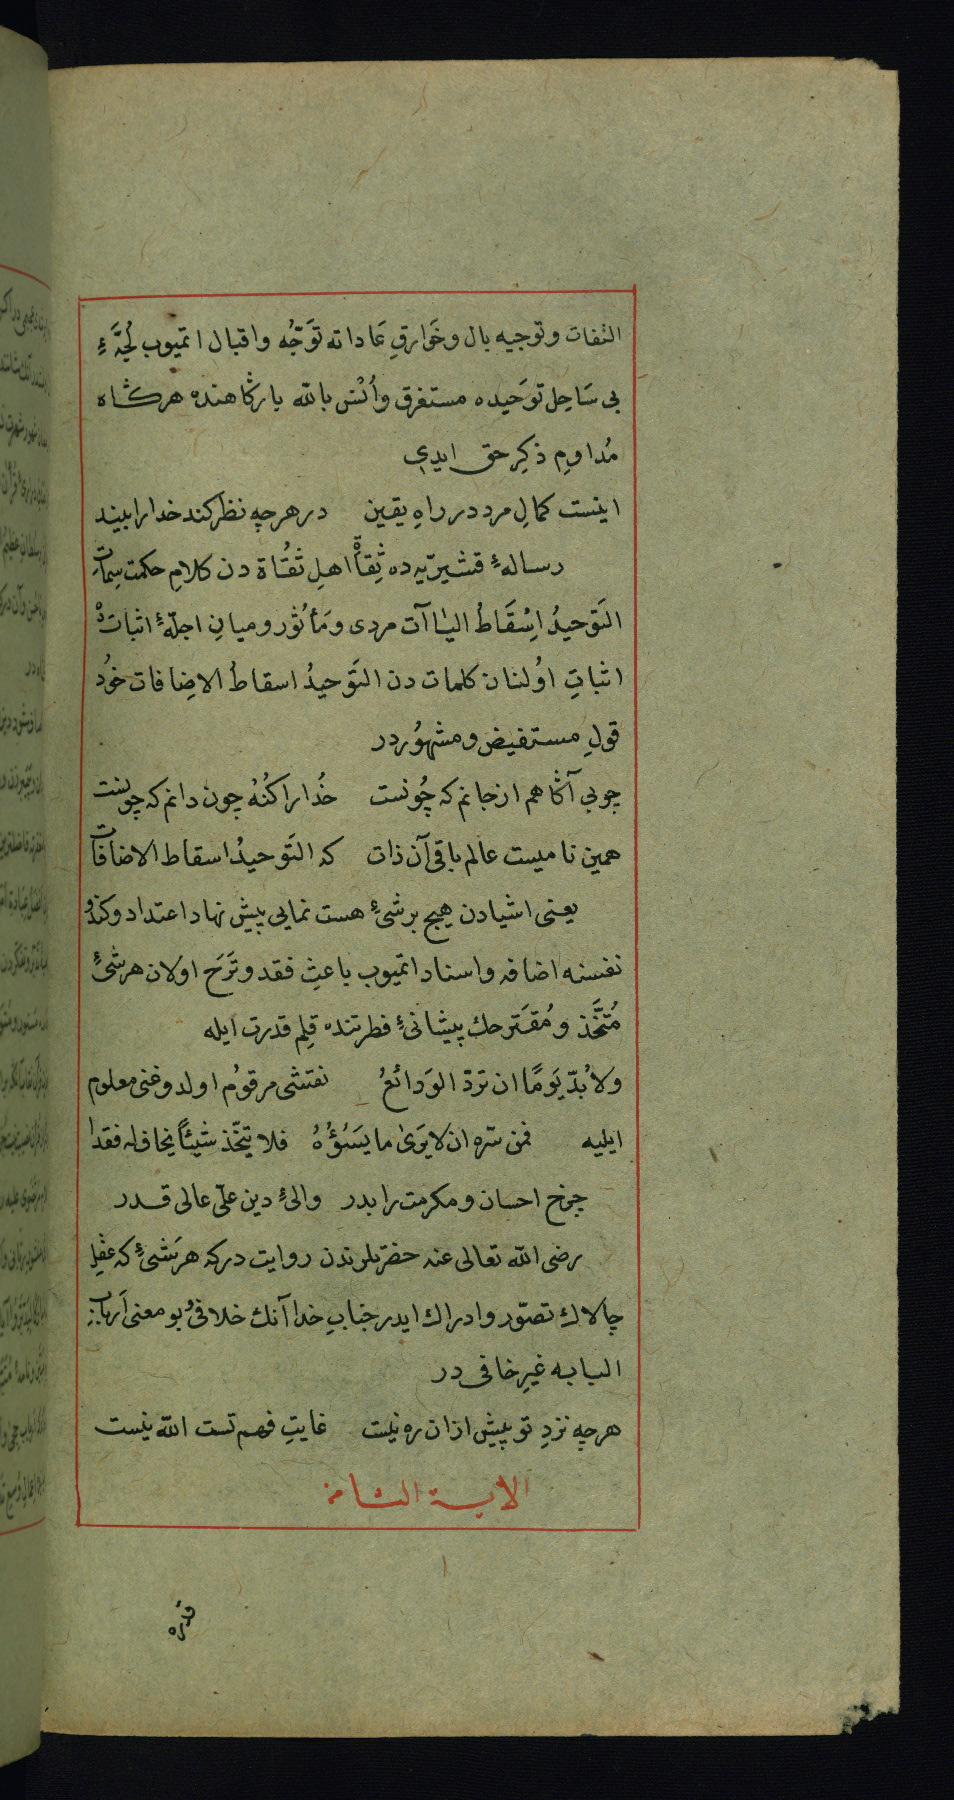 التفات وتوجیه بال وخَوارقِ عاداته توَجّه واقبال اتمیوب لُجّهٔ
بی سَاحِل توَحیده مستغرق واُنْس بالله بارگاهنده هرگاه
مُداومِ ذکِرِ حق ایدی
اینست کمالِ مرد در راهِ یقین در هرچه نظر کند خدارا بیند
رسالهٔ قشیریّه ده ثِقاةْ اهلِ تُقاة دن کلامِ حکمت سِمات
التَوحیدُ اِسْقَاطُ الیاآت مردی ومَأثوُر ومیانِ اجلّهٔ اثبات ده
اثباتِ اوُلنان کلمات دن التَوحیدُ اسقاطُ الاضِافات خوُد
قولِ مستفیض ومشهوُر در
چو بی آگاهم از جانم که چُونست خُدارا کُنْهْ چون دانم که چونست
همین نامیست عالم باقی آن ذات که التَوحیدُ اسقاط الاضافات
یعنی اشیادن هیچ بر شیٔ هست نمایی پیش نهاد اعتداد وکندو
نفسنه اضافه واسناد اتمیوب باعثِ فقد وتَرَح اولان هر شیٔ
مُتَّخَذ ومُقتَرحك پیشانیٔ فطرتنده قلِم قدرت ایله
ولاْبُدّ یَومًا ان تردّ الوَدائعُ نقتشی مرقوُم اولدوغنی معلوم
ایلیه فمن سّره ان لایَریٰ ما یسَوُؤُهُ فلا یتّخذ شیئاً یخاف له فقدا
چرخ احسان ومکرمت را بدر والیٔ دین علّی عالی قدر
رضی الله تعالی عنه حضرتلرندن روایت درکه هر شیٔ که عقلِ
چالاك تصوّر وادراك ایدر جنابِ خدا آنك خلافی بو معنی اَربابِ
البابه غیرِ خافی در
هرچه نزدِ تو پیش ازان ره نیست غایتِ فهم تست الله نیست
الاٰیـة الثامنه
قدره